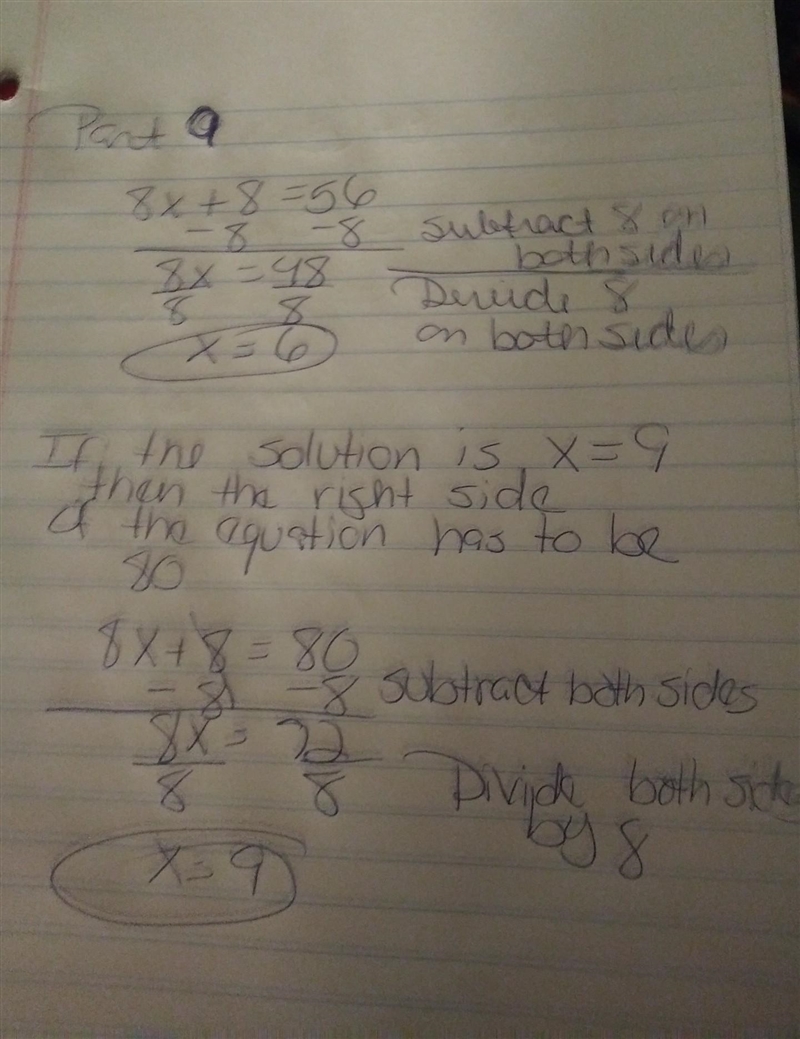 Part 9
8x + 8 = 56
- 8 - 8 subtract 8 on
both sides
8x = 48
8 8 Devide 8
x = 6 on both sides
If the solution is x = 9
then the right side
of the equation has to be
80
8x + 8 = 80
- 8 - 8 subtract both sides
8x = 72
8 8 Divide both sides
by 8
x = 9